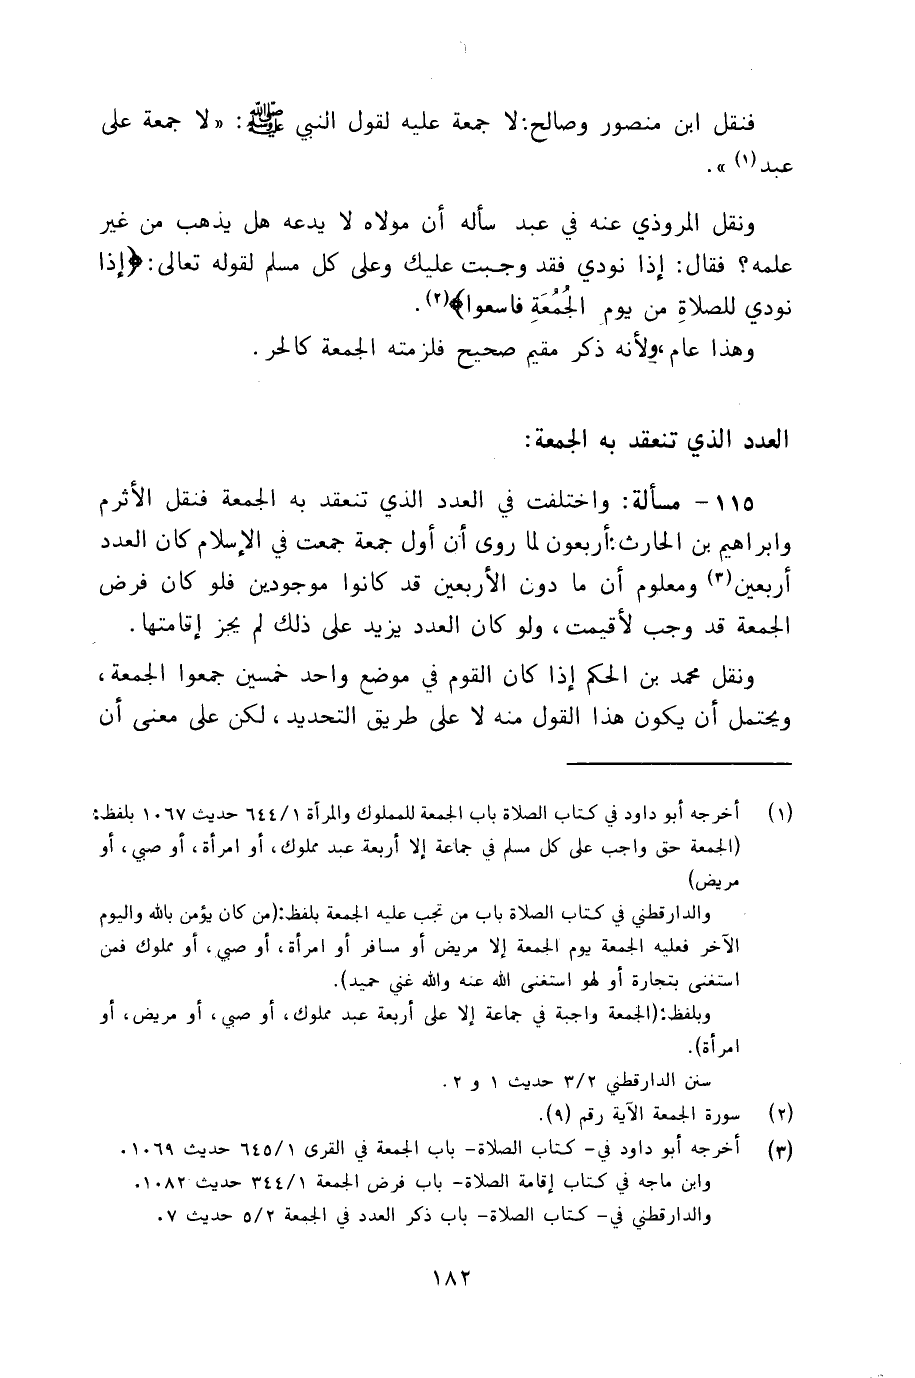 فنقل ابن منصور وصالح: لا جمعة عليه لقول النبي ﷺ: «لا جمعة على
عبد(١)».
ونقل المروذي عنه في عبد سأله أن مولاه لا يدعه هل يذهب من غير
علمه؟ فقال: إذا نودي فقد وجبت عليك وعلى كل مسلم لقوله تعالى: ﴿إذا
نودي للصلاةِ من يومِ الجُمُعَةِ فاسعوا﴾(٢).
وهذا عام، ولأنه ذكر مقيم صحيح فلزمته الجمعة كالحر.
العدد الذي تنعقد به الجمعة:
١١٥ - مسألة: واختلفت في العدد الذي تنعقد به الجمعة فنقل الأثرم
وابراهيم بن الحارث: أربعون لما روى أن أول جمعة جمعت في الإسلام كان العدد
أربعين(٣) ومعلوم أن ما دون الأربعين قد كانوا موجودين فلو كان فرض
الجمعة قد وجب لأقيمت، ولو كان العدد يزيد على ذلك لم يجز إقامتها.
ونقل محمد بن الحكم إذا كان القوم في موضع واحد خمسين جمعوا الجمعة،
ويحتمل أن يكون هذا القول منه لا على طريق التحديد، لكن على معنى أن
(١) أخرجه أبو داود في كتاب الصلاة باب الجمعة للمملوك والمرأة ٦٤٤/١ حديث ١٠٦٧ بلفظ:
(الجمعة حق واجب على كل مسلم في جماعة إلا أربعة عبد مملوك، أو امرأة، أو صبي، أو
مريض)
والدارقطني في كتاب الصلاة باب من تجب عليه الجمعة بلفظ: (من كان يؤمن بالله واليوم
الآخر فعليه الجمعة يوم الجمعة إلا مريض أو مسافر أو امرأة، أو صبي، أو مملوك فمن
استغنى بتجارة أو لهو استغنى الله عنه والله غني حميد).
وبلفظ: (الجمعة واجبة في جماعة إلا على أربعة عبد مملوك، أو صبي، أو مريض، أو
امرأة).
سنن الدارقطني ٣/٢ حديث ١ و ٢.
(٢) سورة الجمعة الآية رقم (٩).
(٣) أخرجه أبو داود في- كتاب الصلاة- باب الجمعة في القرى ٦٤٥/١ حديث ١٠٦٩.
وابن ماجه في كتاب إقامة الصلاة- باب فرض الجمعة ٣٤٤/١ حديث ١٠٨٢.
والدارقطني في- كتاب الصلاة- باب ذكر العدد في الجمعة ٥/٢ حديث ٧.
١٨٢